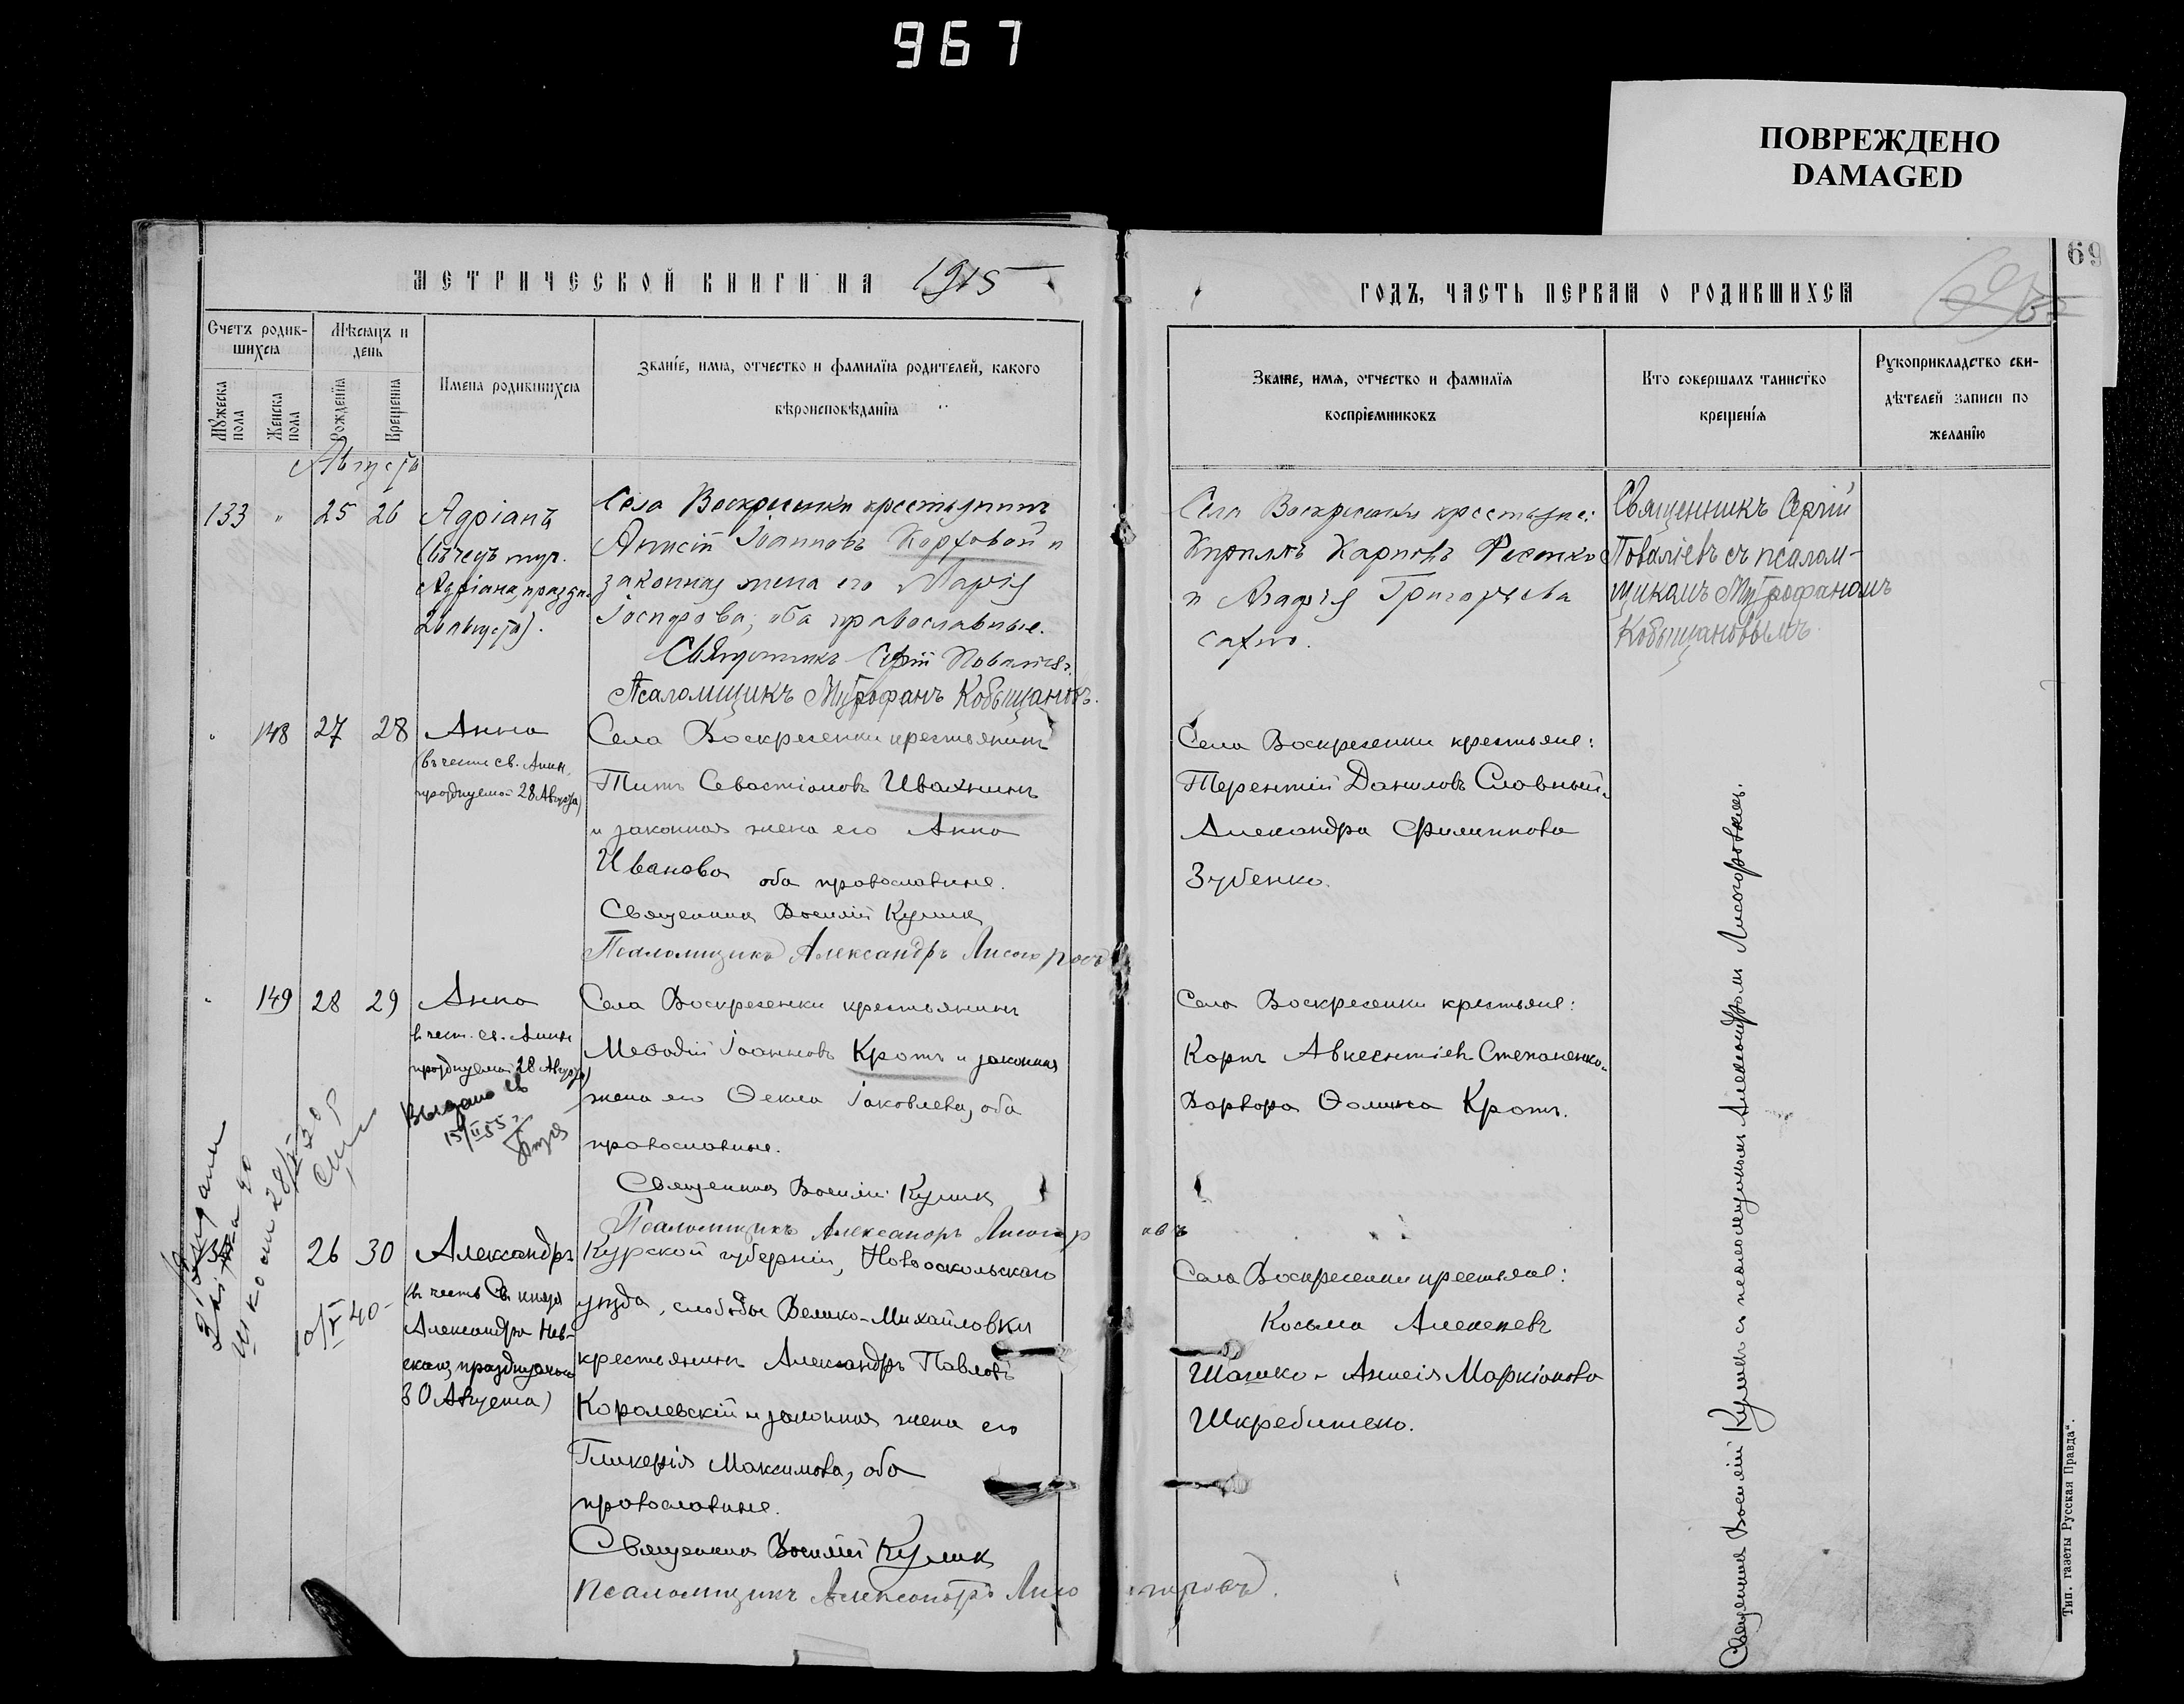 967
ПОВРЕЖДЕНО
DAMAGED
69
МЕТРИЧЕСКОЙ КНИГИ НА 1915
ГОДЪ, ЧАСТЬ ПЕРВАЯ О РОДИВШИХСЯ
Счетъ родившихся
Мѣсяцъ и день
Мужеска пола
Женска пола
Рожденія
Крещенія
Имена родившихся
Званіе, имя, отчество и фамилія родителей, какого
вѣроисповѣданія
Званіе, имя, отчество и фамилія
воспріемниковъ
Кто совершалъ таинство
крещенія
Рукоприкладство сви-
дѣтелей записи по
желанію
Августа
133 " 25 26
Адріанъ
(въ честь муч.
Адріана, праздн.
26 августа).
Села Воскресенки крестьянинъ
Анисій Іоанновъ Корховой и
законная жена его Марія
оба православные.
Священникъ Сергій Поваліевъ.
Псаломщикъ Митрофанъ Кобыщановъ.
Села Воскресенки крестьяне:
Кириллъ Карповъ Фесенко
и Агафія Григорьева
Сахно.
Священникъ Сергій
Поваліевъ съ псалом-
щикомъ Митрофаномъ
Кобыщановымъ.
" 148 27 28
Анна
(въ честь св. Анны,
празднуемой 28 Августа)
Села Воскресенки крестьянинъ
Титъ Севастіановъ Ивахнинъ
и законная жена его Анна
Иванова оба православные.
Священникъ Василій Куликъ
Псаломщикъ Александръ Лисогоровъ
Села Воскресенки крестьяне:
Терентій Даниловъ Славный,
Александра Филиппова
Зубенко.
" 149 28 29
Анна
въ чест. св. Анны
празднуемой 28 Августа)
Выдано св
15/II 55 г.
Села Воскресенки крестьянинъ
Меѳодій Іоанновъ Кротъ и законная
жена его Ѳекла Іаковлева, оба
православные.
Священникъ Василій Куликъ
Псаломщикъ Александръ Лисогоровъ
Села Воскресенки крестьяне:
Карпъ Авксентіевъ Степаненко
Варвара Ѳомина Кротъ.
26 30
10/V 40
Александръ
(въ честь Св. князя
Александра Нев-
скаго, празднуемаго
30 Августа)
Курской губерніи, Новооскольскаго
уѣзда, слободы Велико-Михайловки
крестьянинъ Александръ Павловъ
Королевскій и законная жена его
Гликерія Максимова, оба
православные.
Священникъ Василій Куликъ
Псаломщикъ Александръ Лисогоровъ.
Села Воскресенки крестьяне:
Косьма Алексѣевъ
Шашко - Анисія Маркіанова
Шкребитько.
Священникъ Василій Куликъ съ псаломщикомъ Александромъ Лисогоровымъ.
Тип. газеты Русская Правда".